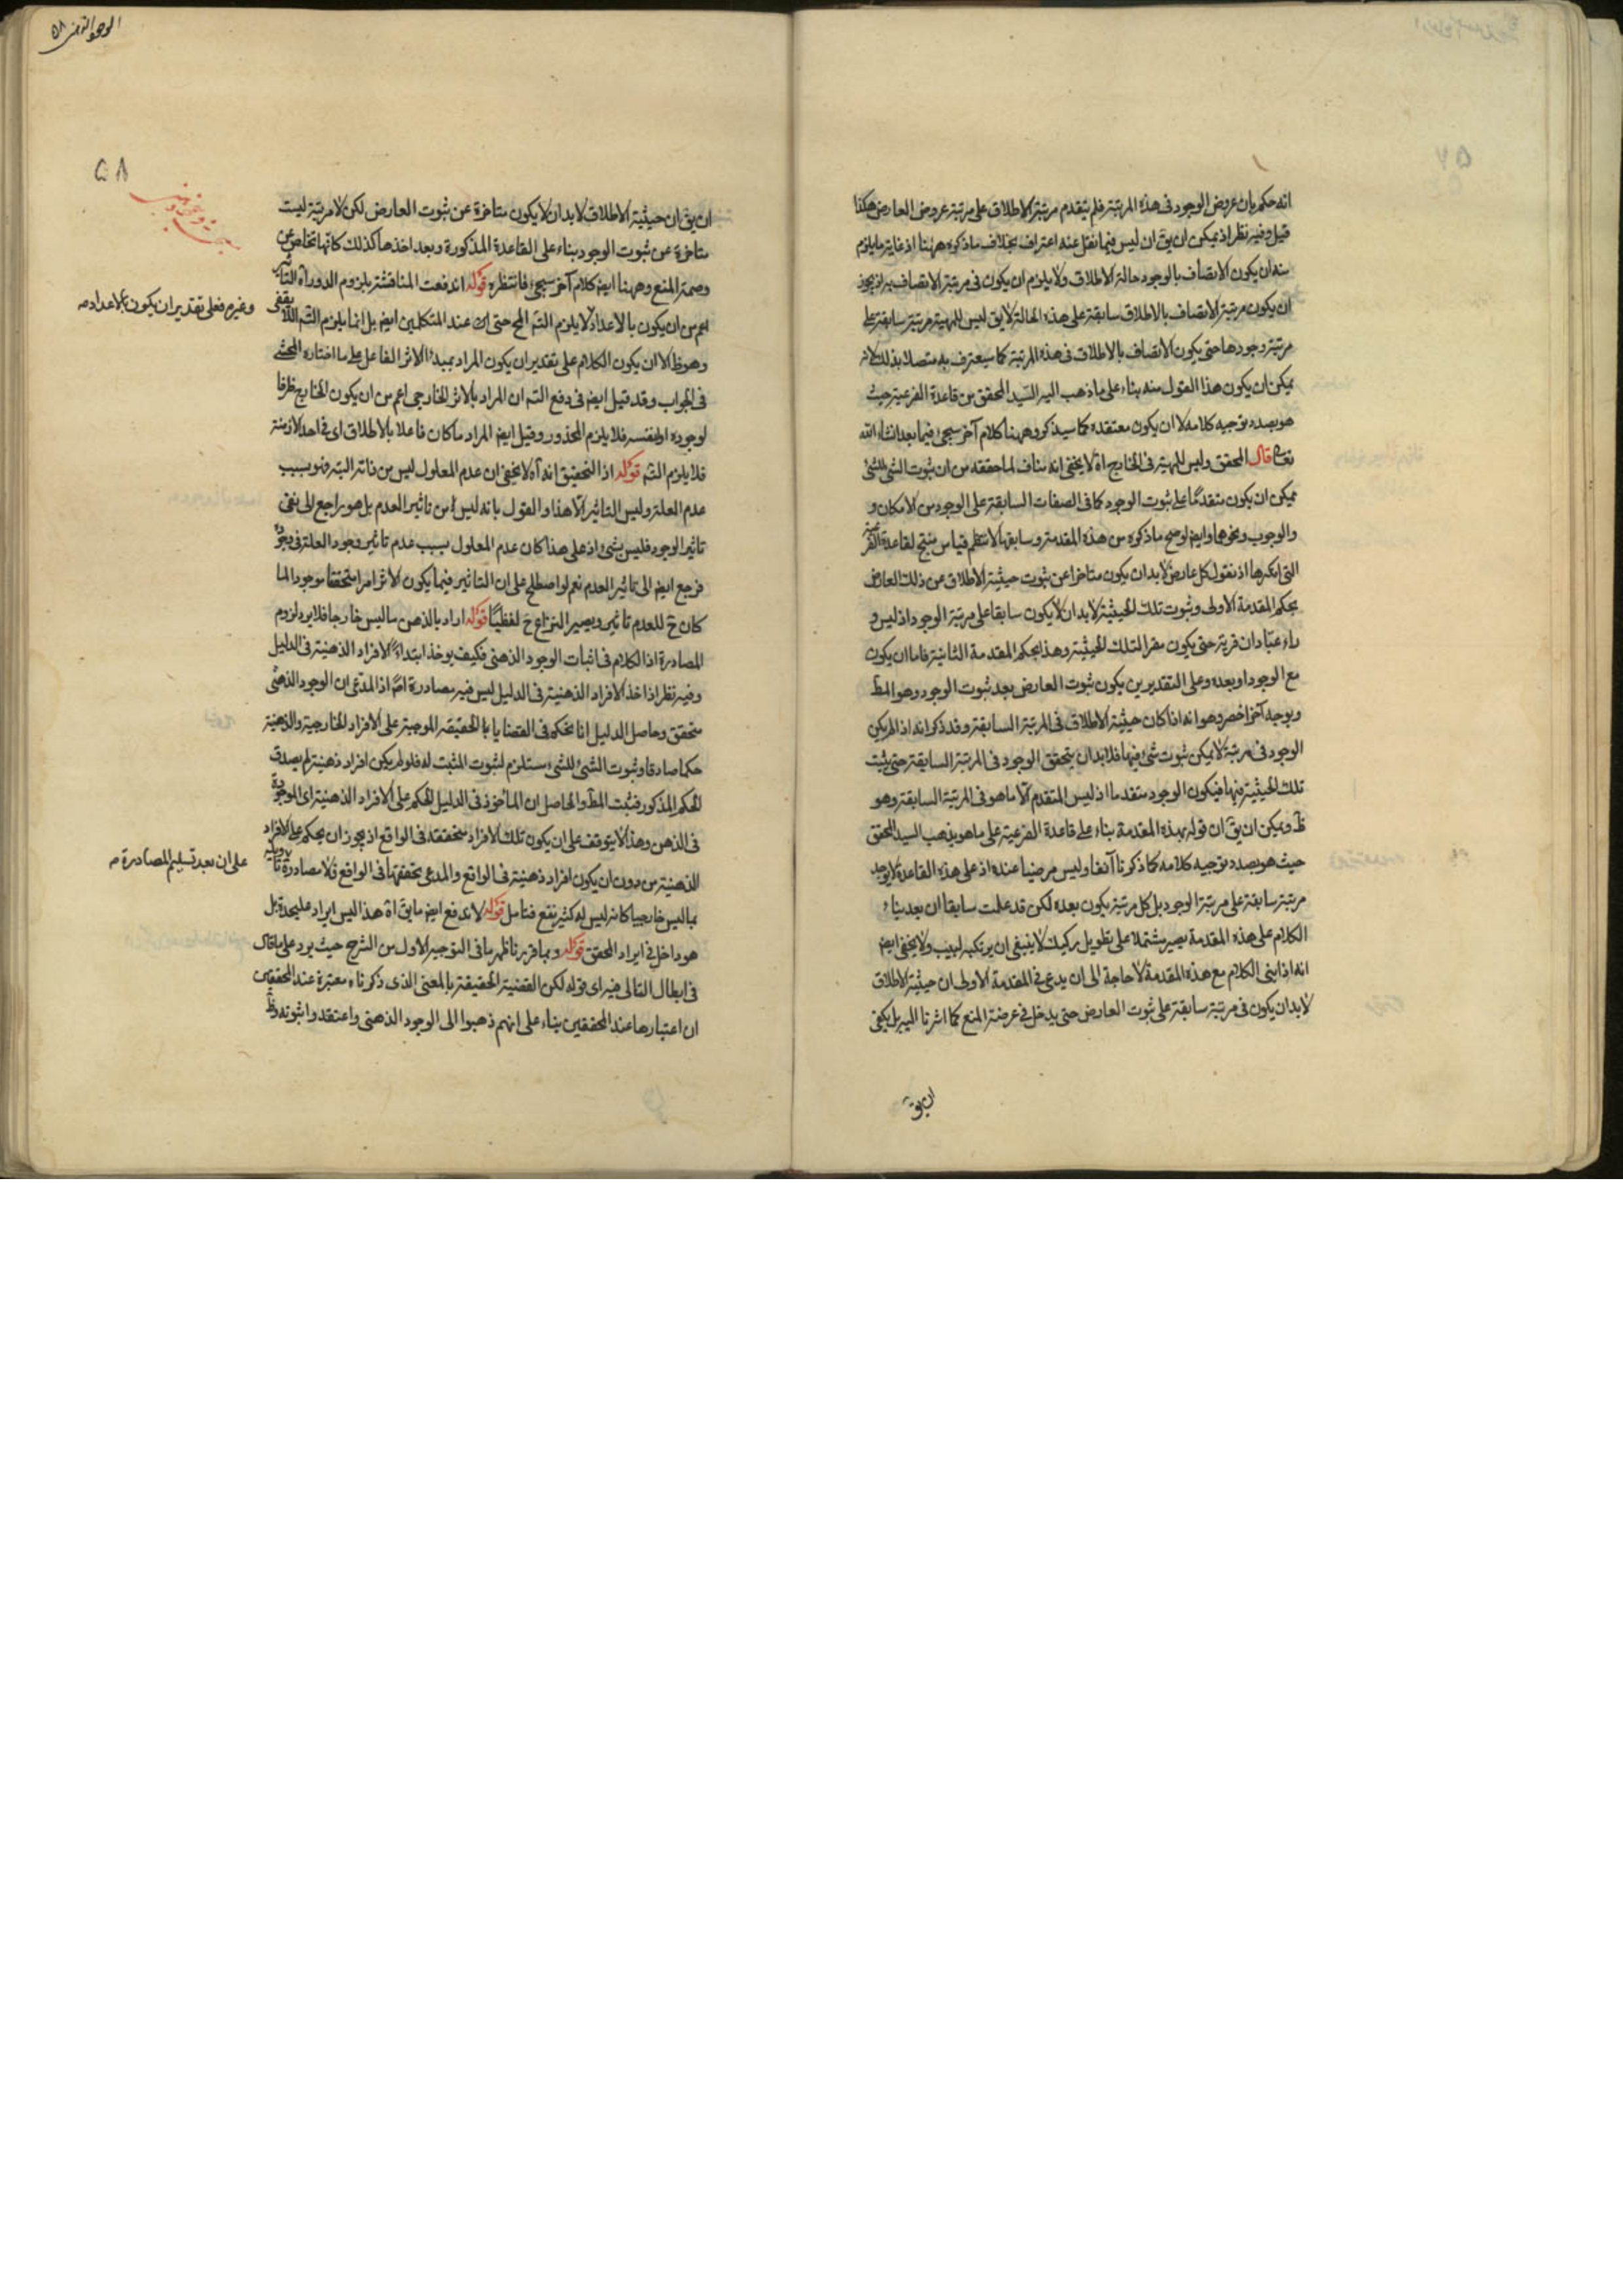 انه حكم بان عروض الوجود فى هذه المرتبة فلم يتقدم مرتبة الاطلاق على مرتبة عروض العارض هكذا
قيل وفيه نظر اذ يمكن ان يق ان ليس فيما نقل عنه اعتراف بخلاف ما ذكره ههنا اذ غاية ما يلزم
منه ان يكون الاتصاف بالوجود حالة الاطلاق ولا يلزم ان يكون فى مرتبة الاتصاف به اذ يجوز
ان يكون مرتبة الاتصاف بالاطلاق سابقة على هذه الحالة لا يق ليس للمهية مرتبة سابقة على
مرتبة وجودها حتى يكون الاتصاف بالاطلاق فى هذه المرتبة كما سيعترف به متصلا بذلك لانه
يمكن ان يكون هذا القول منه بناء على ما ذهب اليه السيد المحقق من قاعدة الفرعية حيث
هو بصدد توجيه كلامه لا ان يكون معتقده كما سيذكر وههنا كلام آخر سيجئ فيما بعد انشاء الله
تعالى قال المحقق وليس للمهية فى الخارج اه لا يخفى انه مناف لما حققه من ان ثبوت الشئ للشئ
يمكن ان يكون متقدما على ثبوت الوجود كما فى الصفات السابقة على الوجود من الامكان و
والوجوب ونحوها وايض لو صح ما ذكره من هذه المقدمة وسابقها لانتظم قياس منتج لقاعدة الفرعية
التى انكرها اذ نقول كل عارض لا بد ان يكون متاخرا عن ثبوت حيثية الاطلاق عن ذلك العارض
بحكم المقدمة الاولى وثبوت تلك الحيثية لا بد ان لا يكون سابقا على مرتبة الوجود اذ ليس و
راء عبادان قرية حتى يكون مقرا لتلك الحيثية وهذا بحكم المقدمة الثانية فاما ان يكون
مع الوجود او بعده وعلى التقديرين يكون ثبوت العارض بعد ثبوت الوجود وهو المط
وبوجه آخر اخصر وهو انه اذا كان حيثية الاطلاق فى المرتبة السابقة وقد ذكر انه اذا لم يكن
الوجود فى مرتبة لا يمكن ثبوت شئ فيها فلا بد ان يتحقق الوجود فى المرتبة السابقة حتى يثبت
تلك الحيثية فيها فيكون الوجود متقدما اذ ليس المتقدم الا ما هو فى المرتبة السابقة وهو
ظ ويمكن ان يق ان قوله بهذه المقدمة بناء على قاعدة الفرعية على ما هو مذهب السيد المحقق
حيث هو بصدد توجيه كلامه كما ذكرنا آنفا وليس مرضيا عنده اذ على هذه القاعدة لا يوجد
مرتبة سابقة على مرتبة الوجود بل كل مرتبة يكون بعده لكن قد علمت سابقا ان بعد بناء
الكلام على هذه المقدمة يصير مشتملا على تطويل ركيك لا ينبغى ان يرتكبه لبيب ولا يخفى ايض
انه اذا بنى الكلام مع هذه المقدمة لا حاجة الى ان يدعى فى المقدمة الاولى ان حيثية الاطلاق
لا بد ان يكون فى مرتبة سابقة على ثبوت العارض حتى يدخل فى عرضة المنع كما اشرنا اليه بل يكفى
ان يق
٥٨
ان يق ان حيثية الاطلاق لا بد ان لا يكون متاخرة عن ثبوت العارض لكن لا مرتبة ليست
متاخرة عن ثبوت الوجود بناء على القاعدة المذكورة وبعد اخذها كذلك كانها تخلص عن
وصمة المنع وههنا ايض كلام آخر سيجئ فانتظره قوله اندفعت المناقشة بلزوم الدور اه التاثير
اعم من ان يكون بالاعداد لا يلزم التس المح حتى ان عند المتكلمين ايض بل انما يلزم التس اللايقفى
وغيره فعلى تقدير ان يكون بالاعداد صه
وهو ظ الا ان يكون الكلام على تقدير ان يكون المراد بمبدأ الاثر الفاعل على ما اختاره المحشى
فى الجواب وقد قيل ايض فى دفع التس ان المراد بالاثر الخارجى اعم من ان يكون الخارج ظرفا
لوجوده او لنفسه فلا يلزم المحذور وقيل ايض المراد ما كان فاعلا بالاطلاق اى فى احد الازمنة
فلا يلزم التس قوله اذ التحقيق انه اه لا يخفى ان عدم المعلول ليس من ذاته البتة فهو بسبب
عدم العلة وليس التاثير الا هذا والقول بانه ليس من تاثير العدم بل هو راجع الى نفى
تاثير الوجود فليس بشئ اذ على هذا كان عدم المعلول بسبب عدم تاثير وجود العلة فى وجوده
فرجع ايض الى تاثير العدم نعم لو اصطلح على ان التاثير فيما يكون الاثر امرا متحققا موجودا لما
كان ح للعدم تاثير ويصير النزاع ح لفظيا قوله اراد بالذهن ما ليس خارجا فلا يرد لزوم
المصادرة اذ الكلام فى اثبات الوجود الذهنى فكيف يوخذ ابتداء الافراد الذهنية فى الدليل
وفيه نظر اذ اخذ الافراد الذهنية فى الدليل ليس فيه مصادرة اصلا اذ المدعى ان الوجود الذهنى
متحقق وحاصل الدليل انا نحكم فى القضايا بالحقيقة الموجبة على الافراد الخارجية والذهنية
حكما صادقا وثبوت الشئ للشئ مستلزم لثبوت المثبت له فلو لم يكن افراد ذهنية لم يصدق
الحكم المذكور فثبت المط والحاصل ان الماخوذ فى الدليل الحكم على الافراد الذهنية اى الموجودة
فى الذهن وهذا لا يتوقف على ان يكون تلك الافراد متحققة فى الواقع اذ يجوز ان يحكم على الافراد
الذهنية من دون ان يكون افراد ذهنية فى الواقع والمدعى تحققها فى الواقع فلا مصادرة تاويله
على ان بعد تسليم المصادرة صه
بما ليس خارجيا كانه ليس له كثير نفع فتامل قوله لاندفع ايض ما يق اه هذا ليس ايراد عليحدة بل
هو داخل فى ايراد المحقق قوله وبما قررنا ظهر ما فى التوجيه الاول من الشرح حيث يرد على ما قال
فى ابطال التالى فيه اى قوله لكن القضية الحقيقية بالمعنى الذى ذكرناه معتبرة عند المحققين
ان اعتبارها عند المحققين بناء على انهم ذهبوا الى الوجود الذهنى واعتقدوا ثبوته وظ